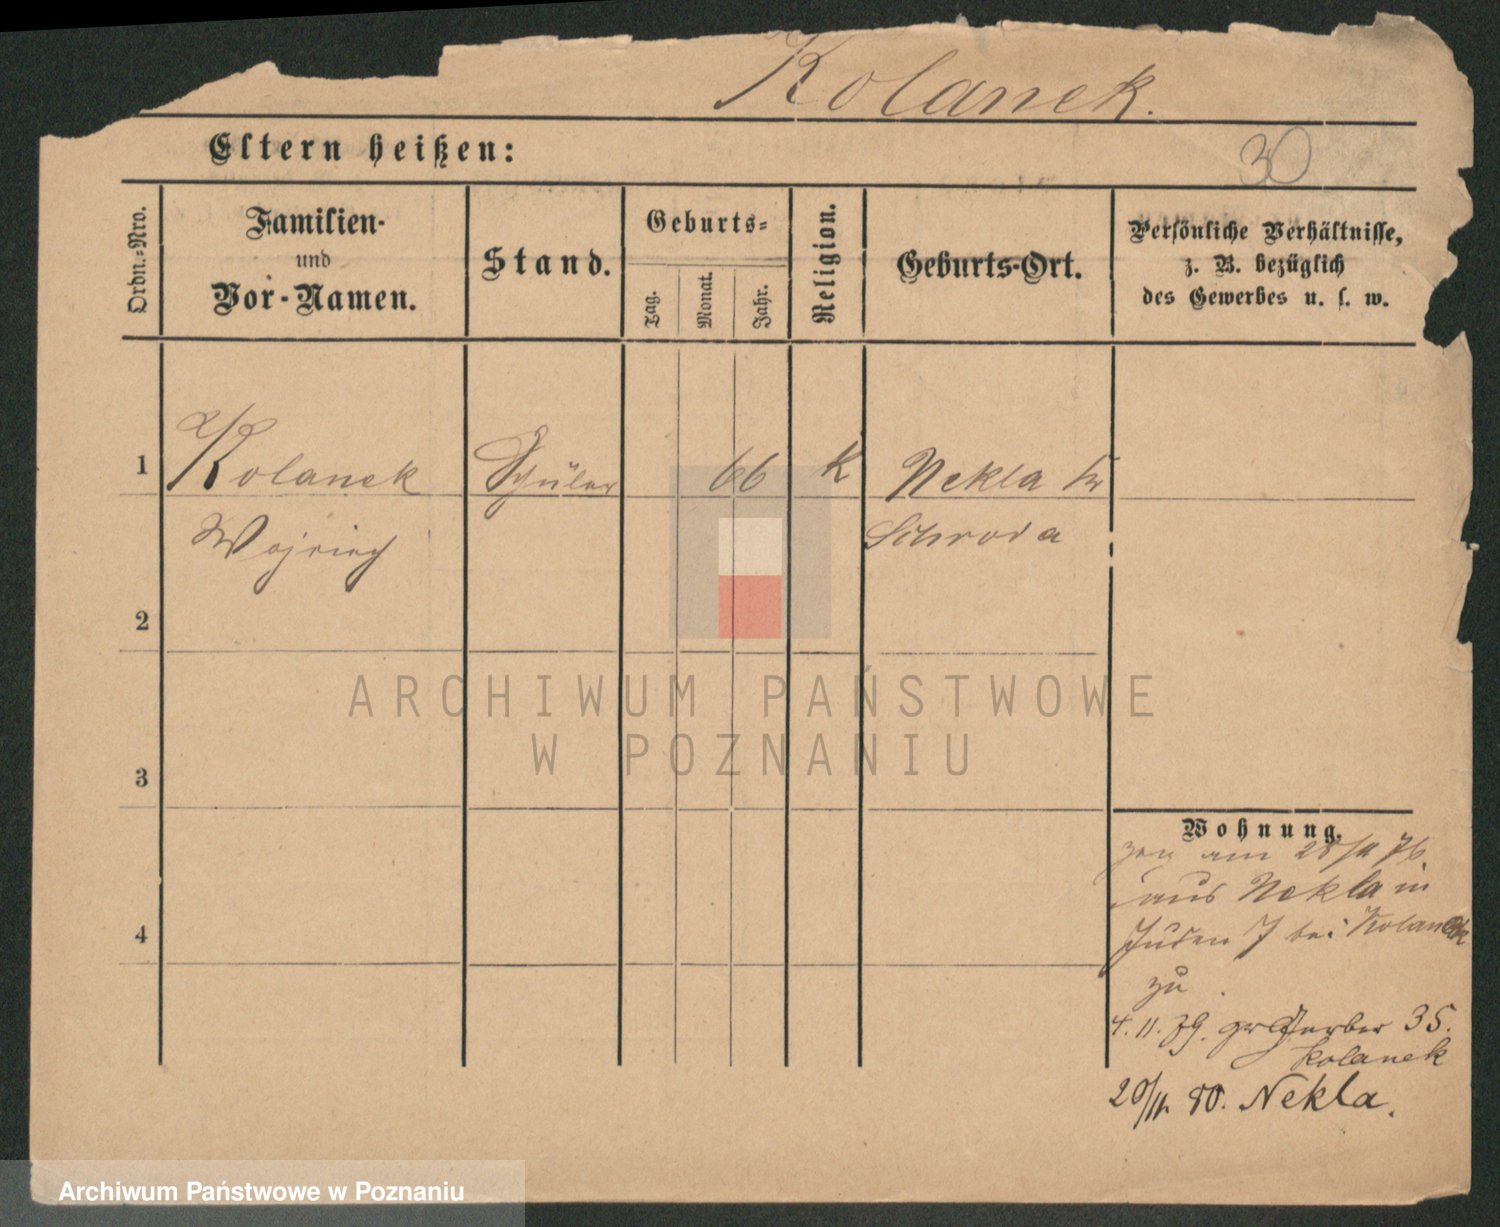 Kolanek.
Eltern heißen:
30
Ordn.-Nro.
Familien-
und
Vor-Namen.
Stand.
Geburts-
Tag.
Monat.
Jahr.
Religion.
Geburts-Ort.
Persönliche Verhältnisse,
z. B. bezüglich
des Gewerbes u. s. w.
1
Kolanek
Schüler
66
K
Nekla Kr
Wojciech
Schroda
2
ARCHIWUM PAŃSTWOWE
W POZNANIU
3
Wohnung.
zog am 28/11 76.
aus Nekla in
4
Juden 7 bei Kolanek
zu.
4. 11. 79. gr Gerber 35.
Kolanek
20/11. 80. Nekla.
Archiwum Państwowe w Poznaniu